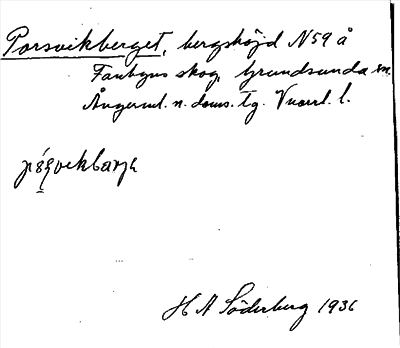 Porsvikberget, bergshöjd N59 å
Fanbyns skog, Grundsunda sn.
Ångerml. n. doms. tg. Vnorrl. l.
H A Söderberg 1936